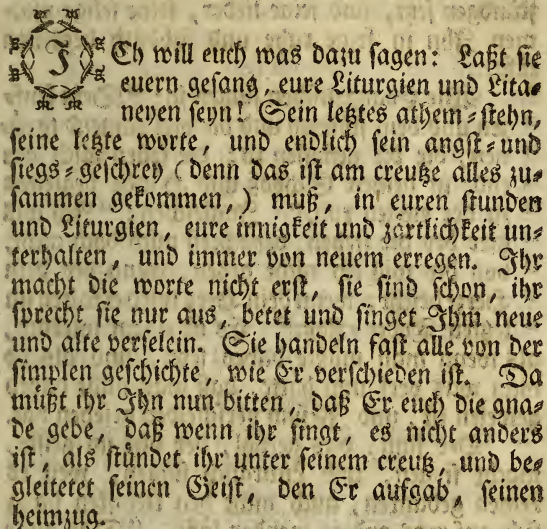 ICh will euch was dazu sagen: Laßt sie
euern gesang, eure Liturgien und Lita-
neyen seyn! Sein letztes athem-stehn,
seine letzte worte, und endlich sein angst-und
siegs-geschrey (denn das ist am creutze alles zu-
sammen gekommen,) muß, in euren stunden
und Liturgien, eure innigkeit und zärtlichkeit un-
terhalten, und immer von neuem erregen. Ihr
macht die worte nicht erst, sie sind schon, ihr
sprecht sie nur aus, betet und singet Ihm neue
und alte verselein. Sie handeln fast alle von der
simplen geschichte, wie Er verschieden ist. Da
müßt ihr Ihn nun bitten, daß Er euch die gna-
de gebe, daß wenn ihr singt, es nicht anders
ist, als stündet ihr unter seinem creutz, und be-
gleitetet seinen Geist, den Er aufgab, seinen
heimzug.